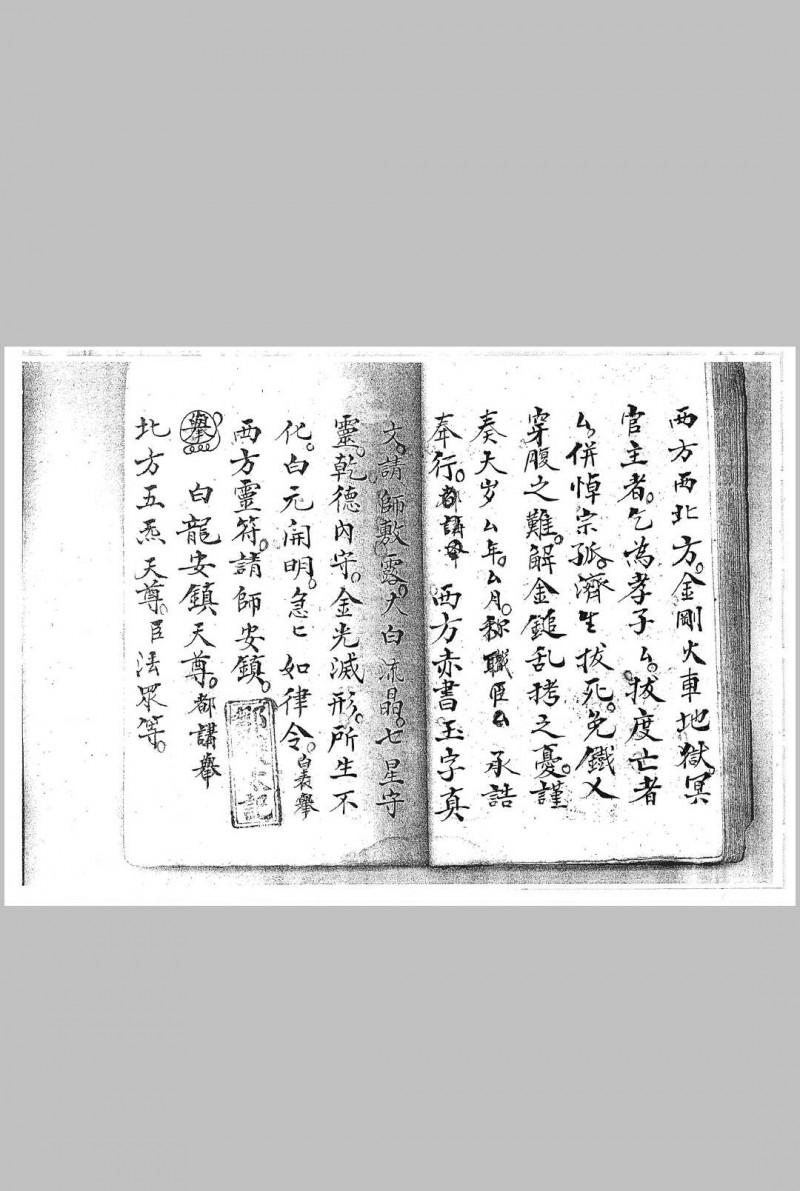 西方西北方。金剛火車地獄。冥
官主者。乞為孝子厶。拔度亡者
厶併悼宗孤。濟生拔死。免鐵叉
穿腹之難。解金鎚乱拷之憂。謹
奏天岁厶年。厶月。称職臣厶承誥
奉行。都講舉 西方赤書玉字真
文。請師敷露。太白流晶。七星守
靈。乾德內守。金光滅形。所生不
化。白元開明。急〻如律令。白表舉
西方靈符。請師安鎮。
舉 白龍安鎮天尊。都講舉
北方五炁天尊。臣法眾等。
記